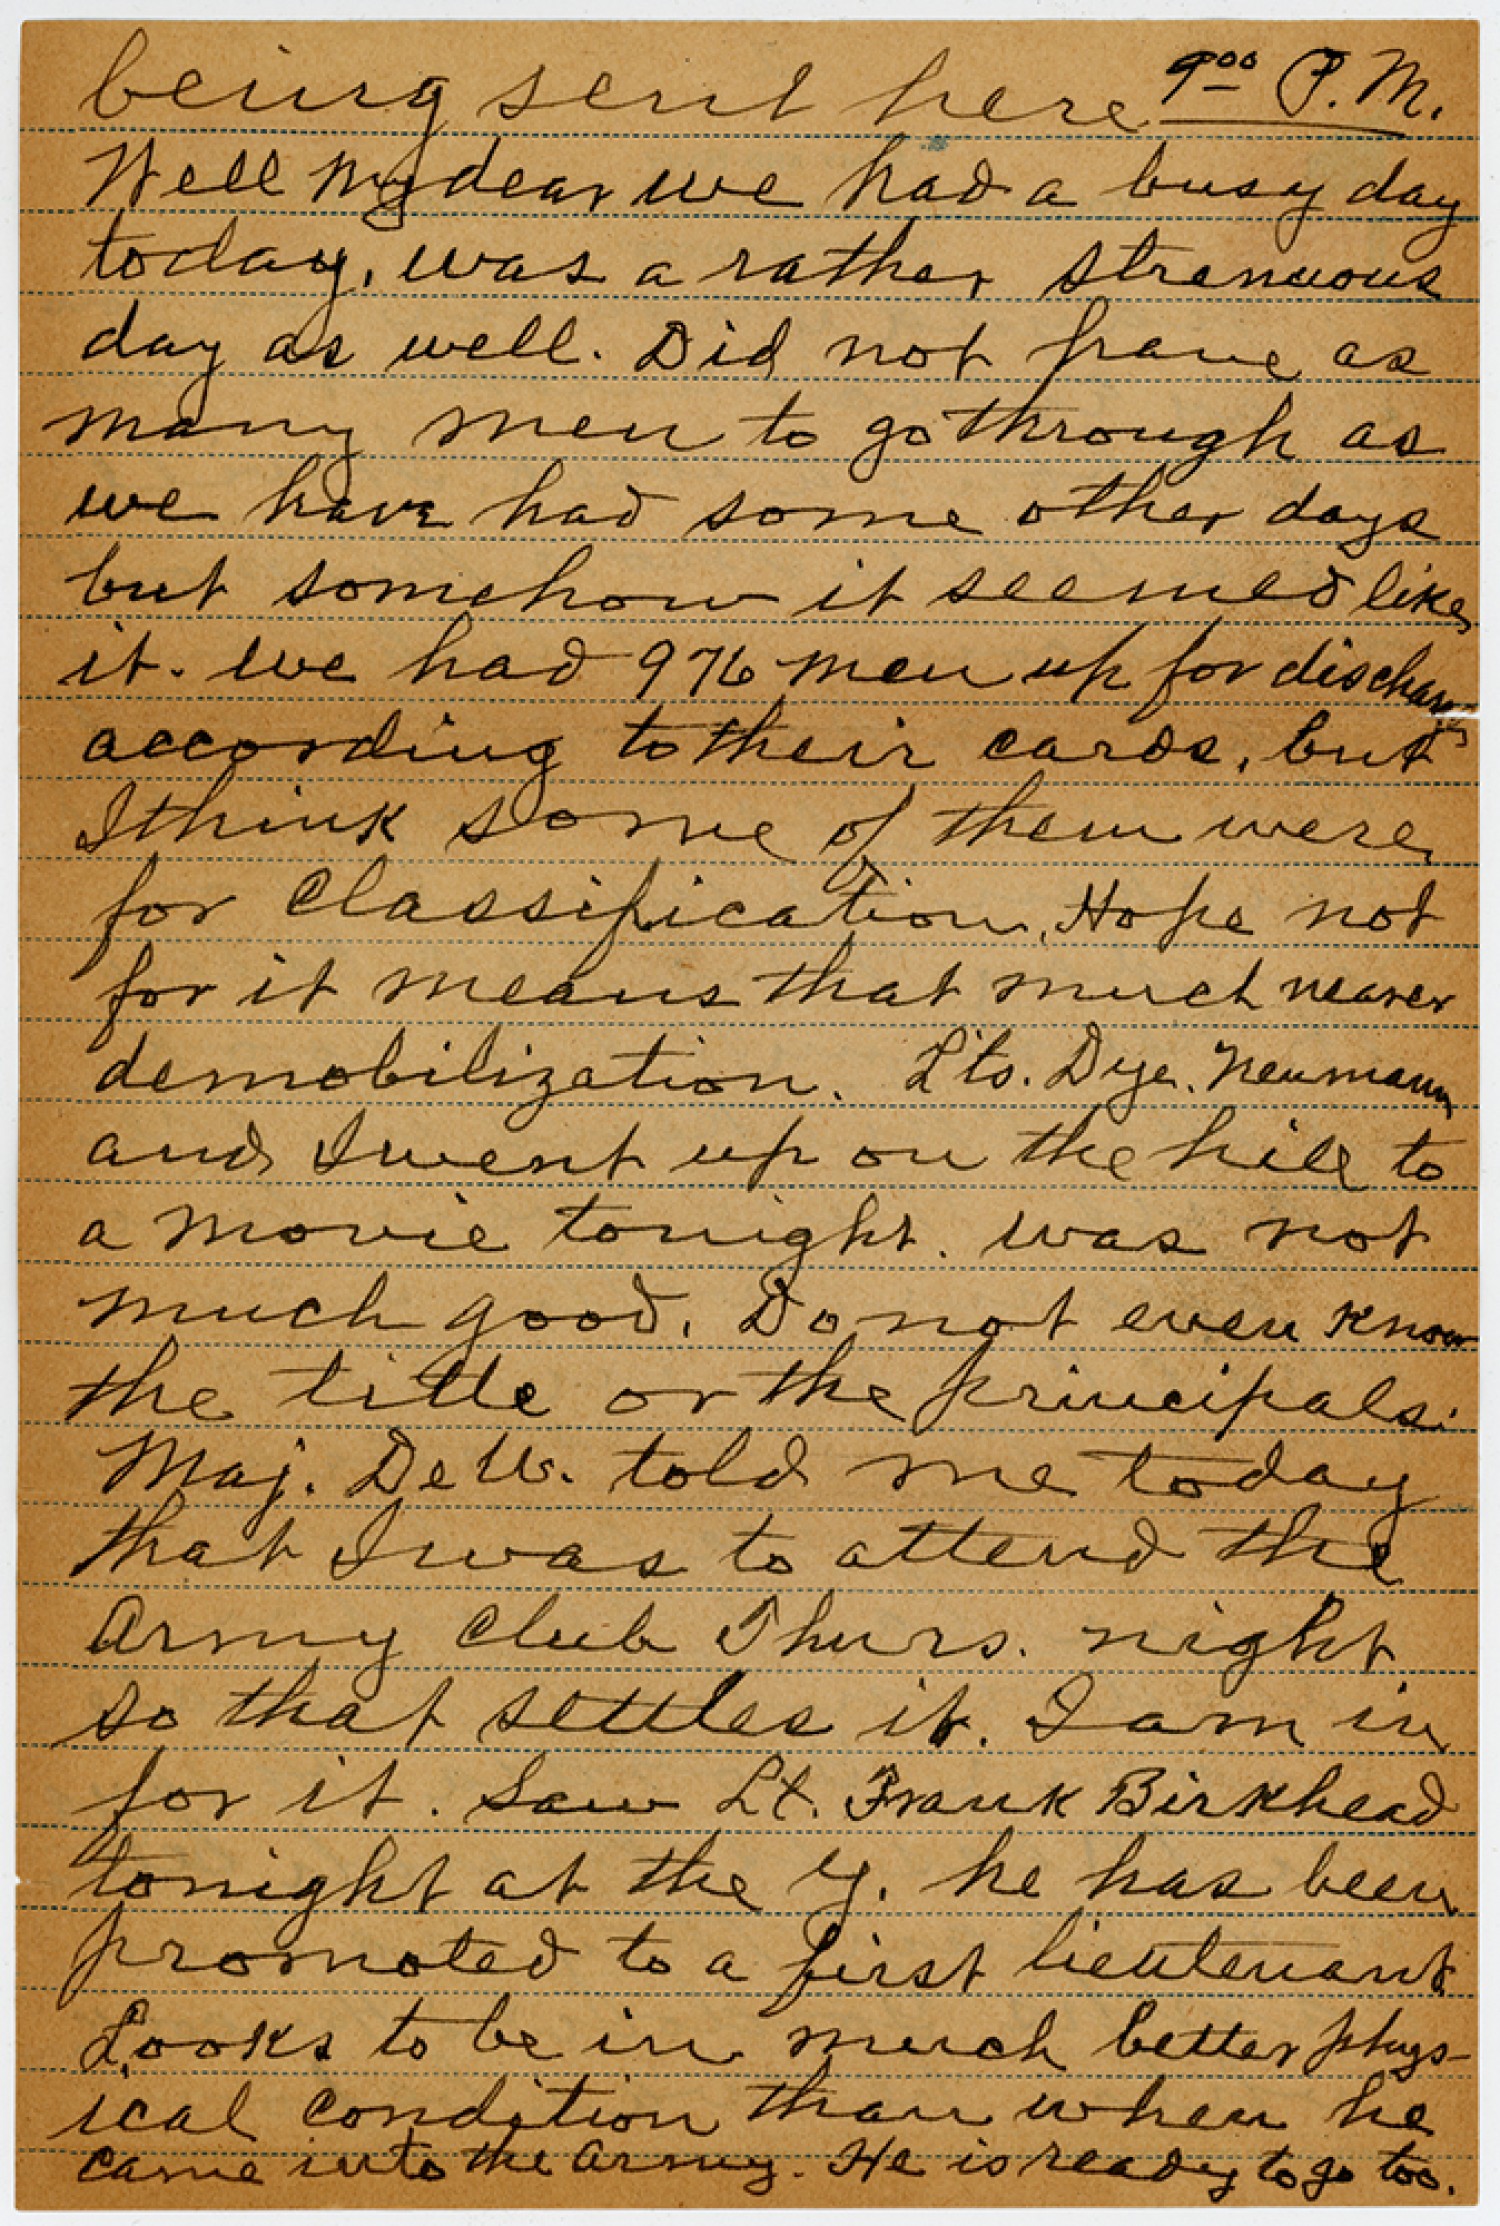 being sent here 9 00 P.M.
Well My dear we had a busy day
today, was a rather strenuous
day as well. Did not have as
many men to go through as
we have had some other days
but somehow it seemed like
it. We had 976 men up for discharges
according to their cards, but
I think some of them were
for classification. Hope not
for it means that much nearer
demobilization. Lts. Dye. Neumann
and I went up on the hill to
a movie tonight. Was not
much good. Do not even know
the title or the principals.
Maj. De W. told me today
that I was to attend the
Army Club Thurs. night
so that settles it. I am in
for it. Saw Lt. Frank Birkhead
tonight at the Y. he has been
promoted to a first lieutenant
Looks to be in much better phys-
ical condition than when he
came into the Army. He is ready to go too.